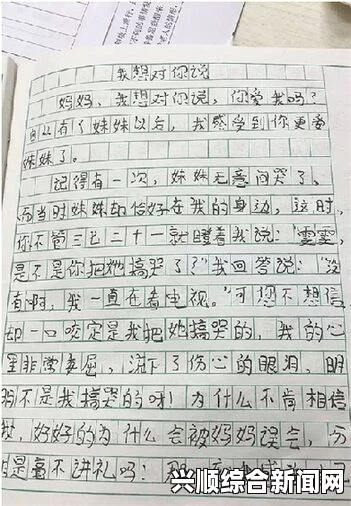 我想对你说
妈妈，我想对你说，你爱我吗？
自从有了妹妹以后，我感受到你更爱
妹妹了。
记得有一次，妹妹无意间哭了，
而当时妹妹却恰好在我的身边，这时，
你不管三七二十一就瞪着我说："雯雯，
是不是你把她搞哭了？"我回答说："没
有啊，我一直在看电视。"可您不想信
却一口咬定是我把她搞哭的，我的心
里非常委屈，流下了伤心的眼泪，明
明不是我搞哭的呀！为什么不肯相信
我，好好的为什么会被妈妈误会，
是毫不讲礼吗！
兴顺综合新闻网